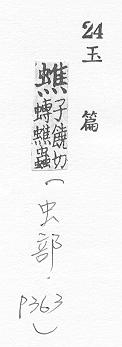 24
玉篇
蟭子饒切
䗚蟭蟲
（虫部．
P363）